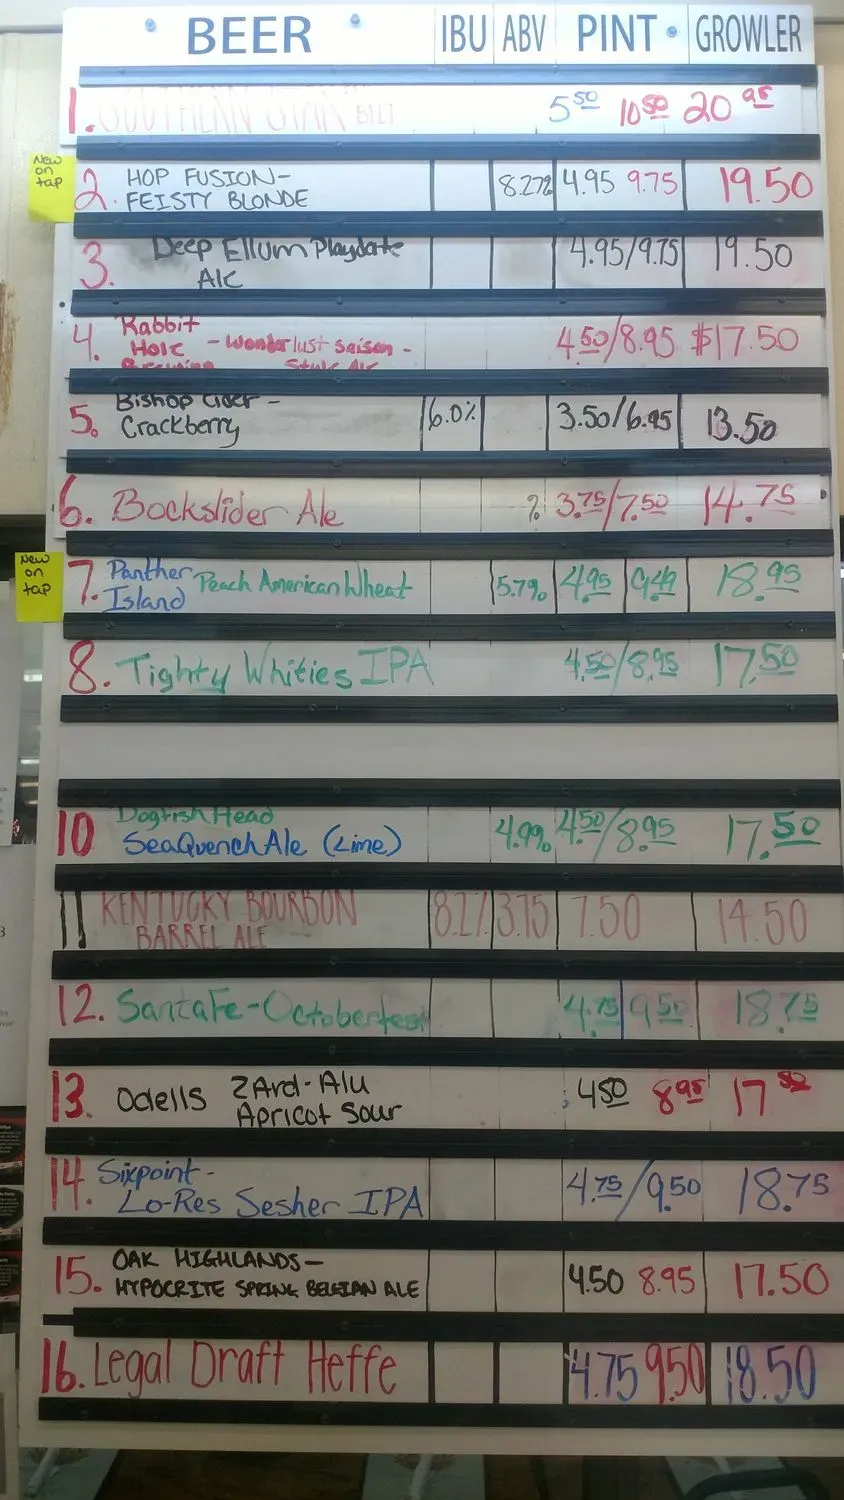 BEER IBU ABV PINT GROWLER
1. SOUTHERN STAR 5 50 10 50 20 95
New
on
tap
2. HOP FUSION- 8.27% 4.95 9.75 19.50
FEISTY BLONDE
3. Deep Ellum Playdate 4.95/9.75 19.50
Ale
4. Rabbit
Hole - Wonderlust Saison - 4.50/8.95 $17.50
Brewing Style Ale
5. Bishop Cider -
Crackberry 6.0% 3.50/6.95 13.50
6. Bockslider Ale % 3.75/7.50 14.75
New
on
tap
7. Panther Peach American Wheat 5.7% 4.95 9.49 18.95
Island
8. Tighty Whities IPA 4.50/8.95 17.50
10 Dogfish Head
SeaQuench Ale (Lime) 4.9% 4.50/8.95 17.50
11 KENTUCKY BOURBON 8.2% 3.75 7.50 14.50
BARREL ALE
12. SantaFe-Octoberfest 4.75 9.50 18.75
13. Odells ZArd-Alu 4 50 8 95 17
Apricot Sour
14. Sixpoint-
Lo-Res Sesher IPA 4.75/9.50 18.75
15. OAK HIGHLANDS- 4.50 8.95 17.50
HYPOCRITE SPRING BELGIAN ALE
16. Legal Draft Heffe 4.75 9.50 18.50